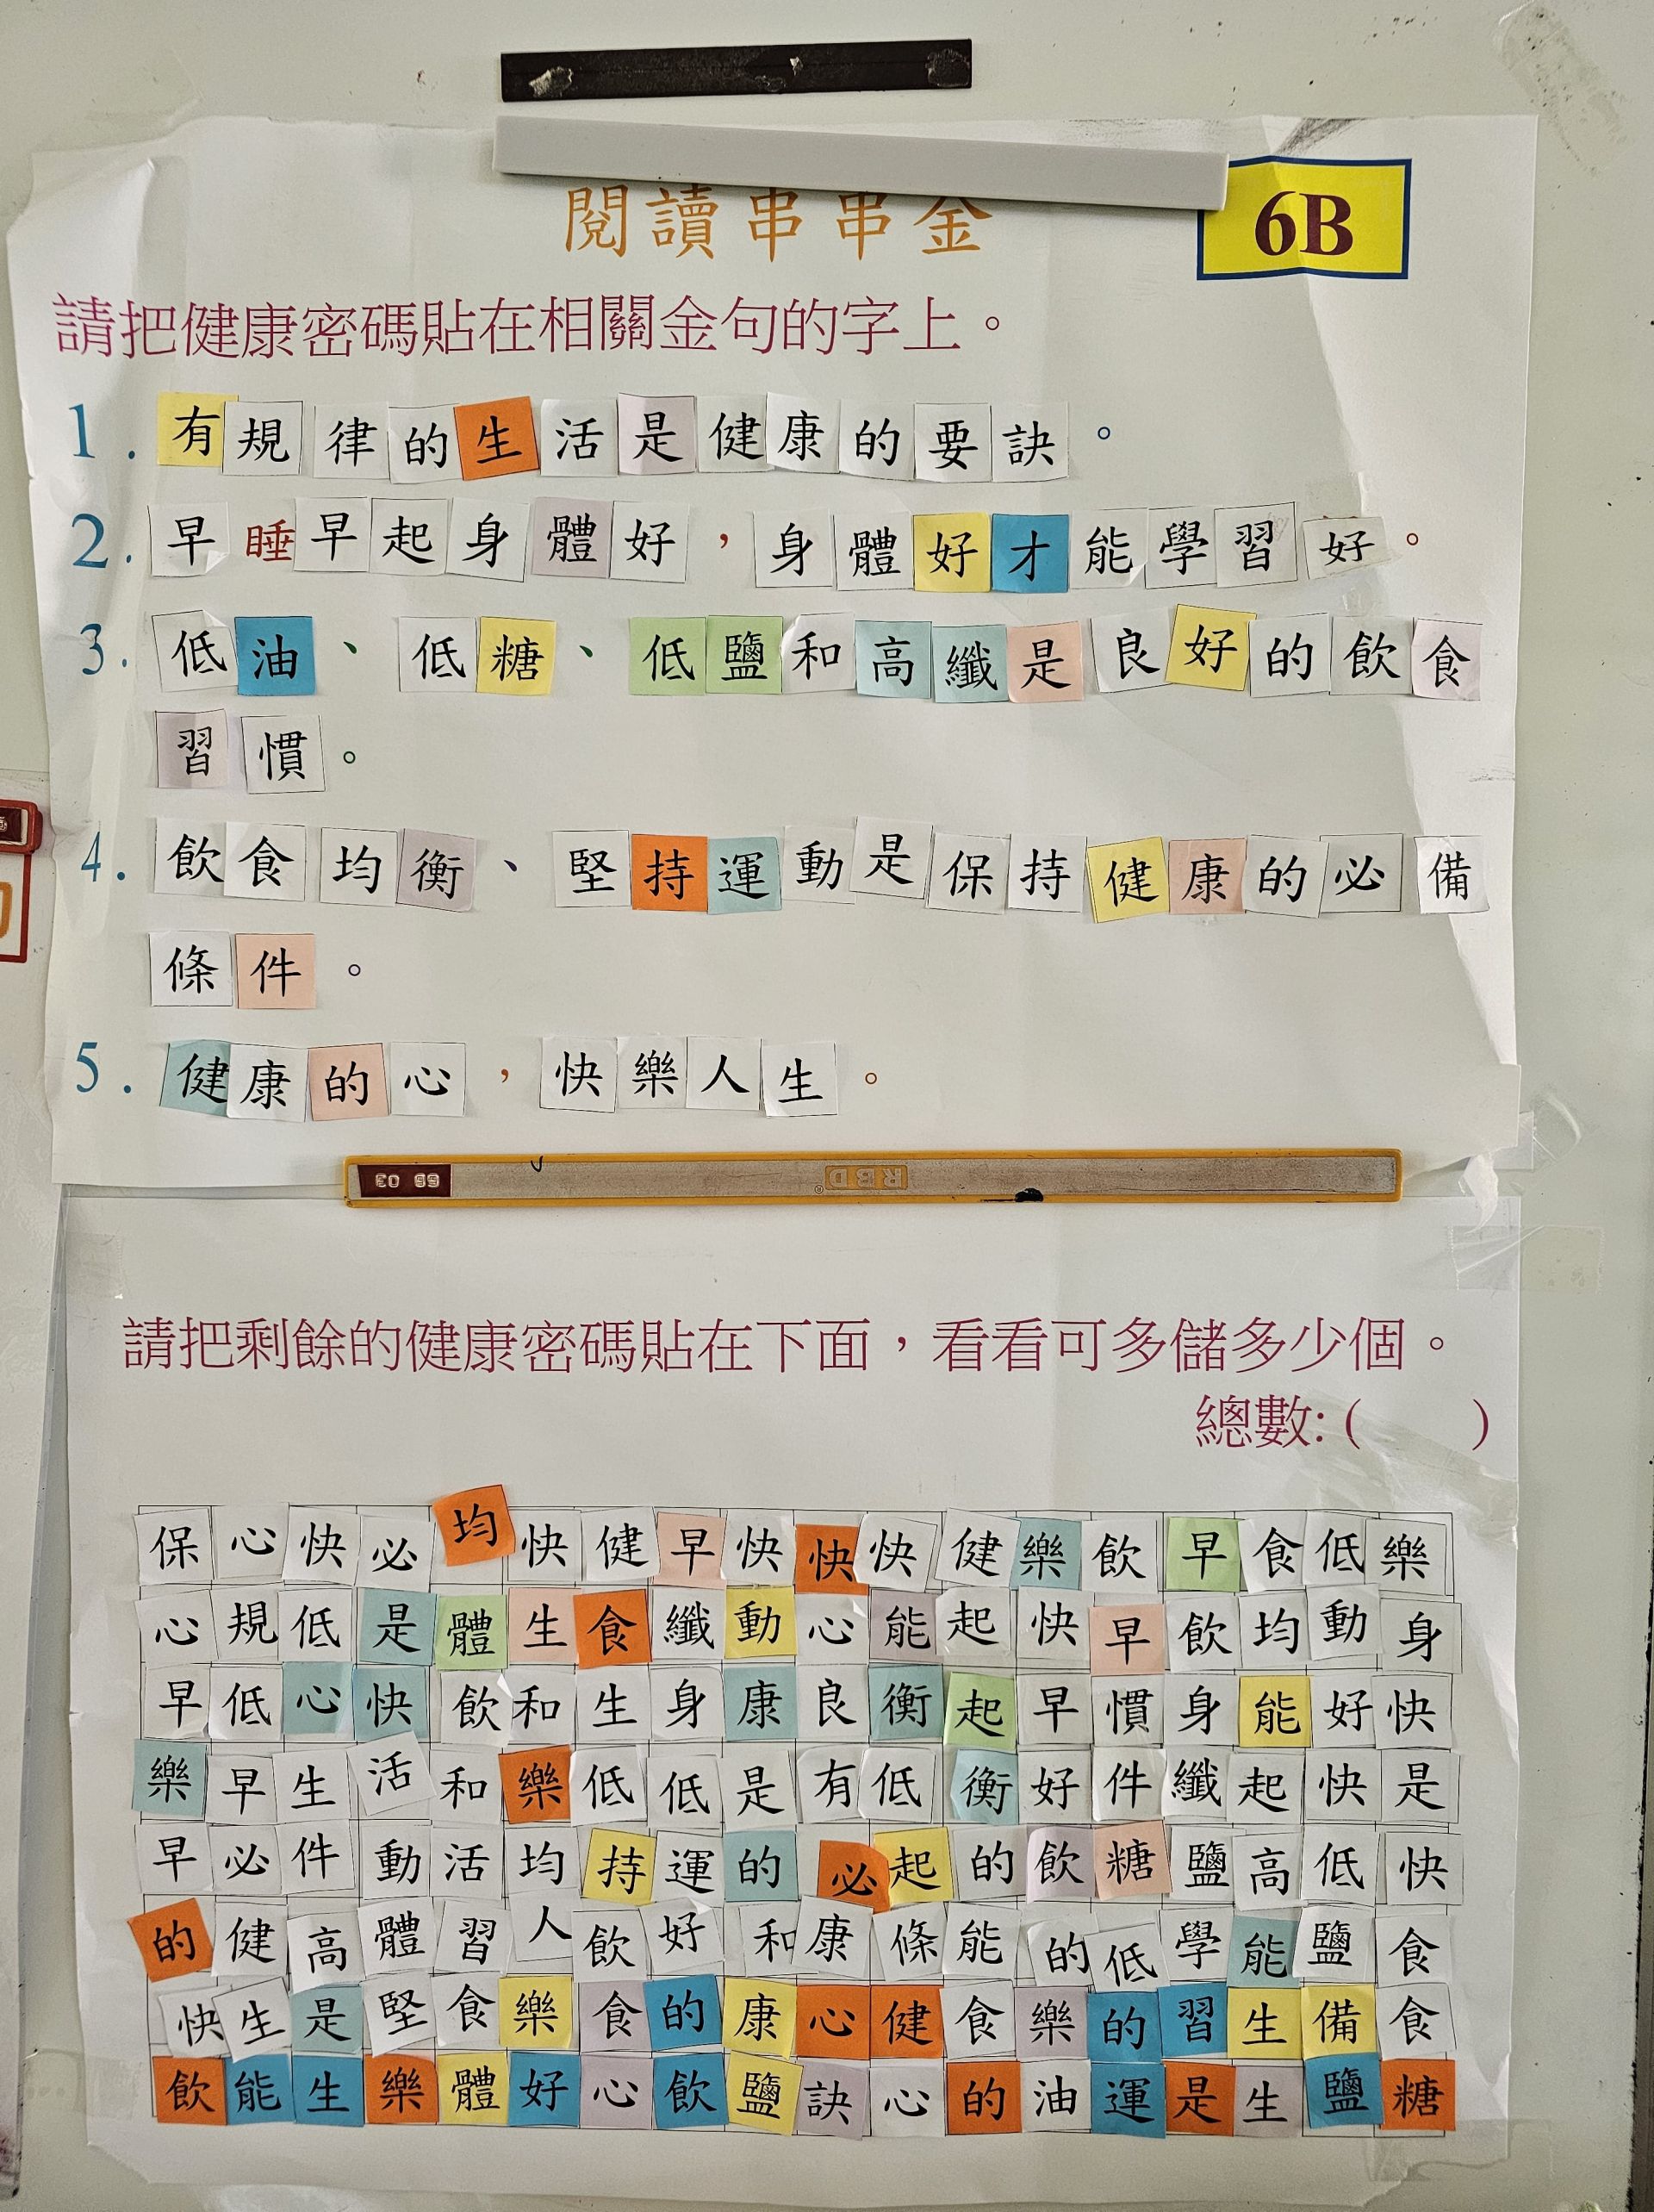 閱讀串串金
6B
請把健康密碼貼在相關金句的字上。
1. 有規律的生活是健康的要訣。
2. 早睡早起身體好，身體好才能學習好。
3. 低油、低糖、低鹽和高纖是良好的飲食
習慣。
4. 飲食均衡、堅持運動是保持健康的必備
條件。
5. 健康的心，快樂人生。
66 03 RBD
請把剩餘的健康密碼貼在下面，看看可多儲多少個。
總數:( )
保心快必均快健早快快快健樂飲早食低樂
心規低是體生食纖動心能起快早飲均動身
早低心快飲和生身康良衡起早慣身能好快
樂早生活和樂低低是有低衡好件纖起快是
早必件動活均持運的必起的飲糖鹽高低快
的健高體習人飲好和康條能的低學能鹽食
快生是堅食樂食的康心健食樂的習生備食
飲能生樂體好心飲鹽訣心的油運是生鹽糖